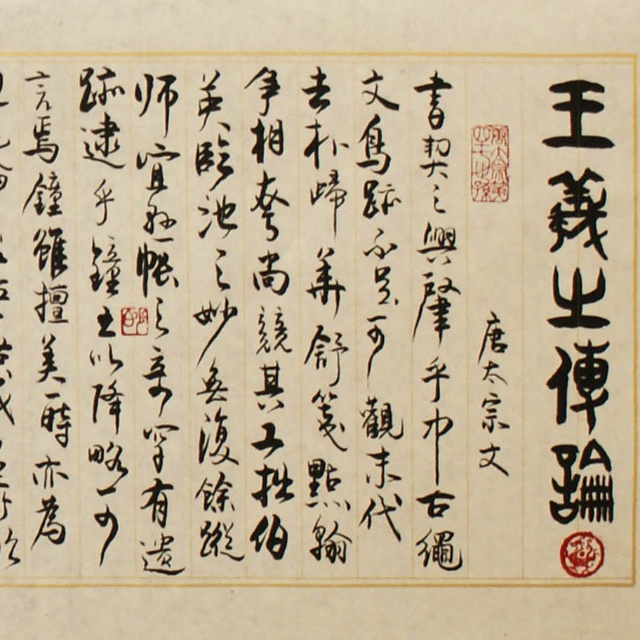 王羲之傳論
唐太宗文
書契之興肇乎中古繩
文鳥跡不足可觀末代
去朴歸華舒箋點翰
爭相夸尚競其工拙伯
英臨池之妙無復餘蹤
师宜懸帳之奇罕有遺
跡逮乎鐘王以降略可
言焉鐘雖擅美一時亦為